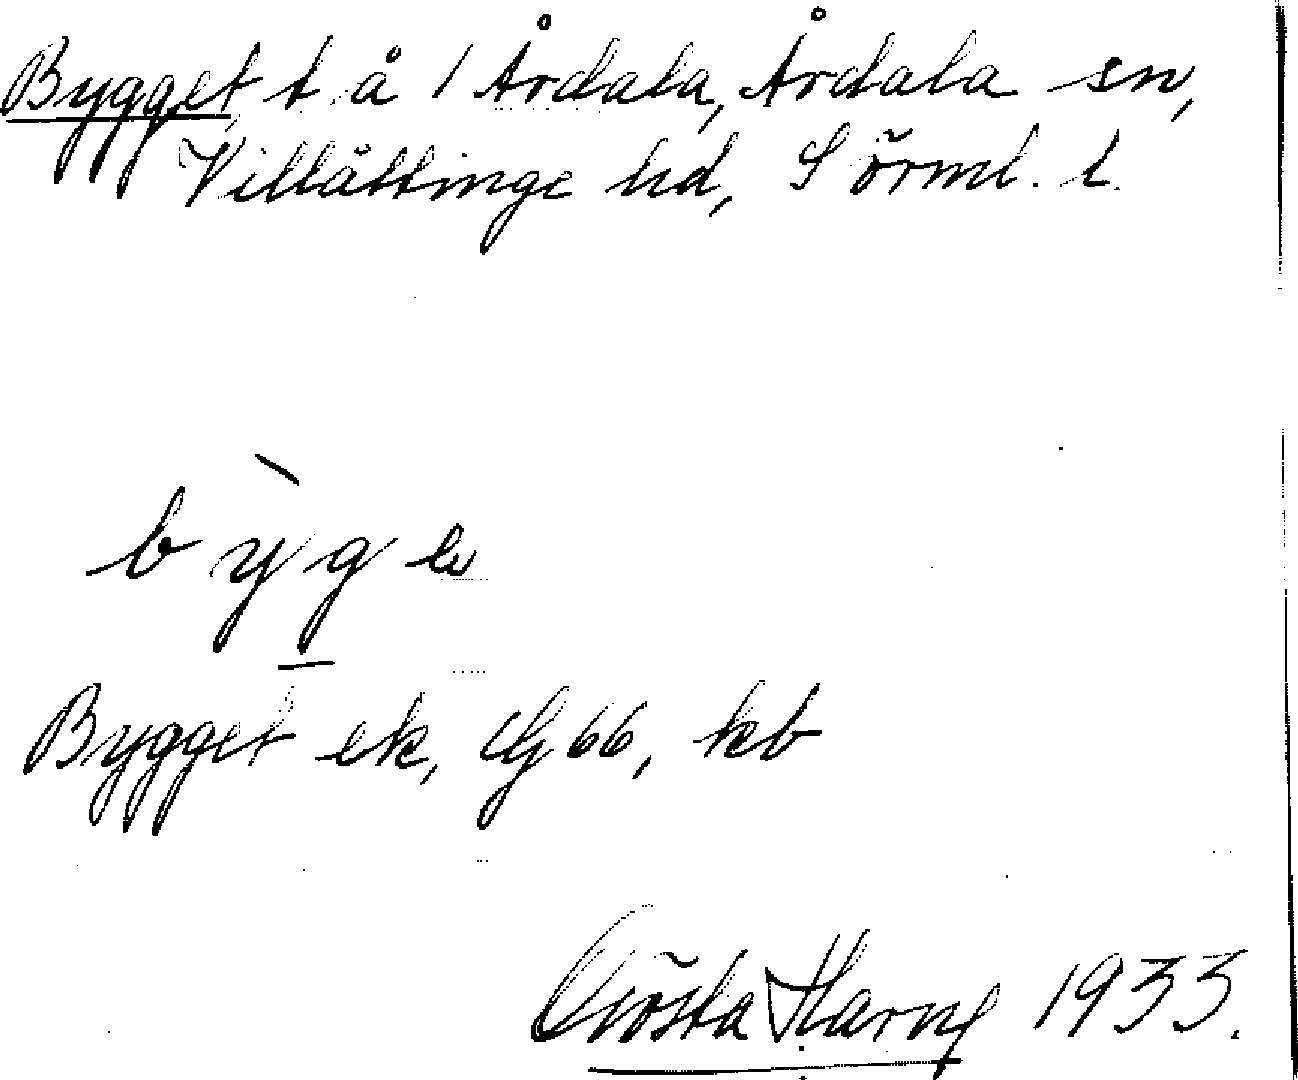 Bygget, t å 1 Årdala, Årdala sn,
Villåttinge hd, Sörml. l.
bỳge
Bygget ek, G 66, kb
Gösta Harng 1933.